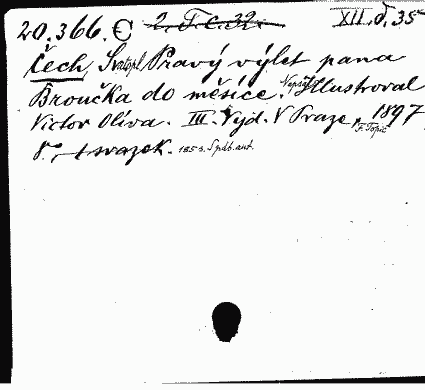 20.366. € 2. T. c. 32. XII. d. 35
Čech, Svatopl. Pravý výlet pana
Broučka do měsíce. Napsal Illustroval
Victor Oliva. III. Vyd. V Praze, F. Topič 1897
8° 1 svazek. 185 s. S podob. aut.